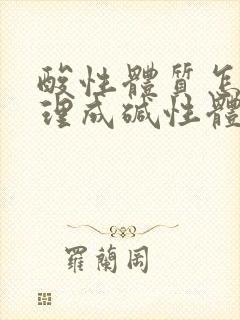 酸性體質怎
理成碱性體
羅蘭岡